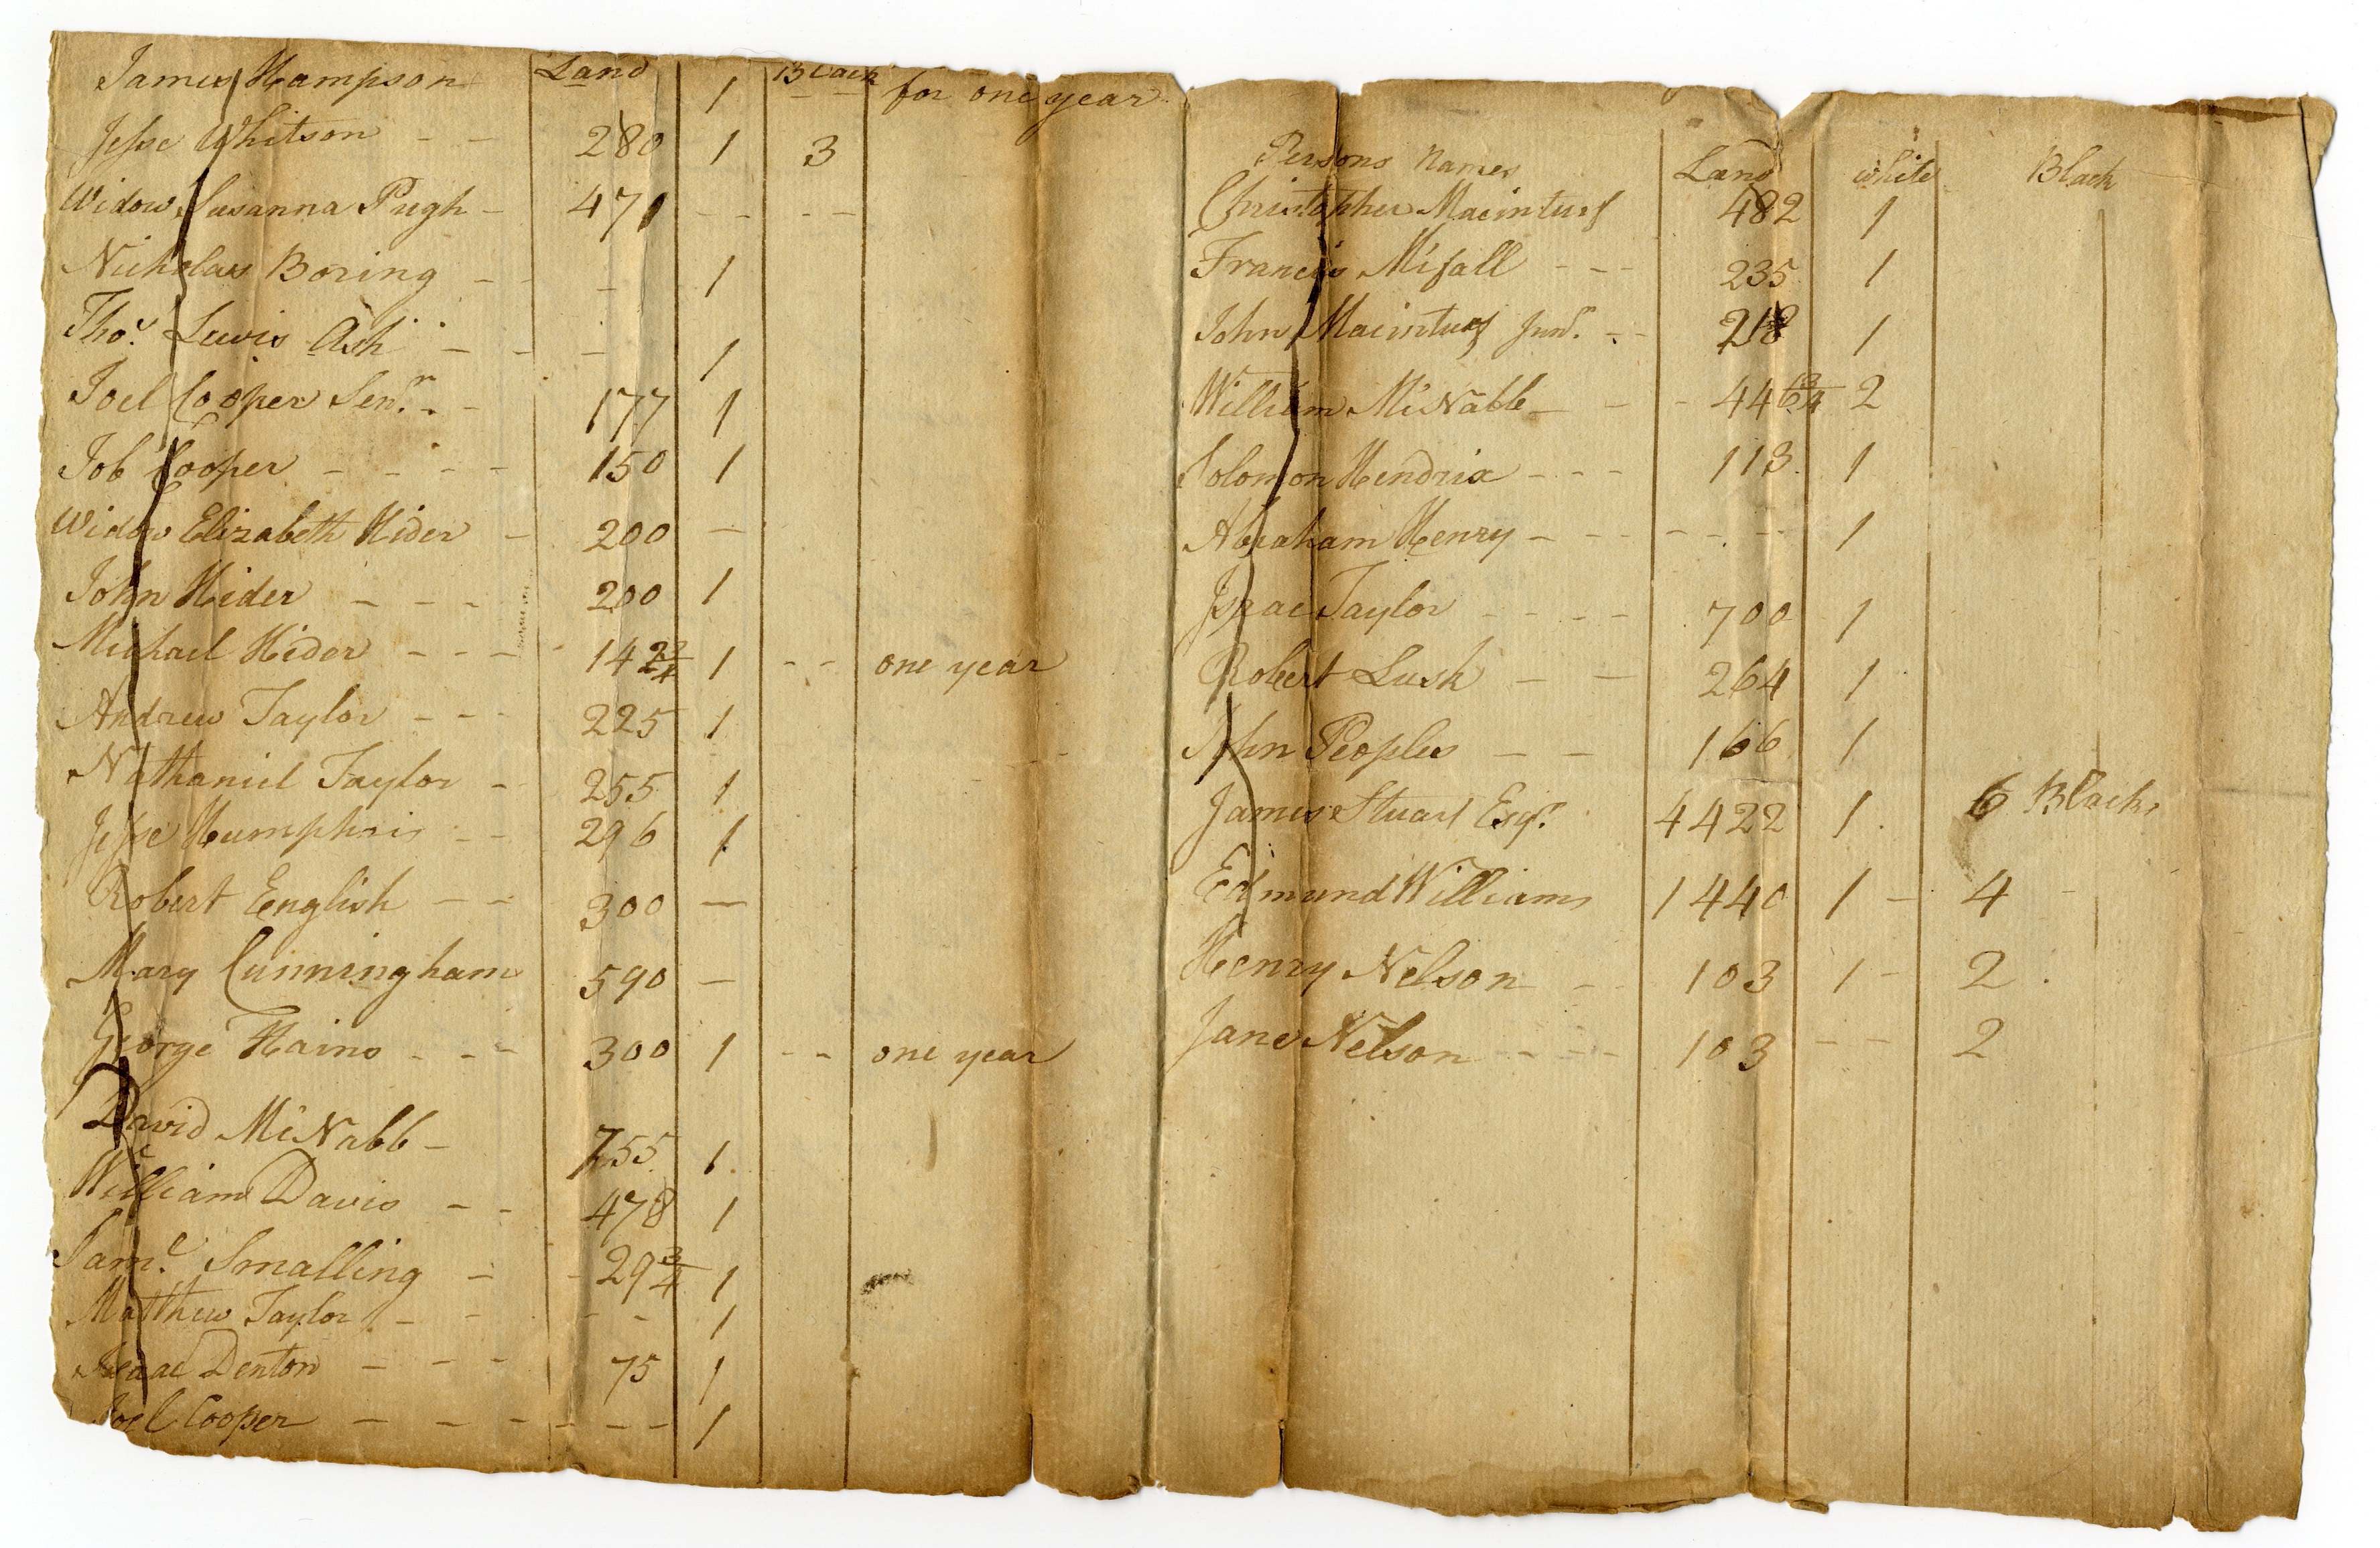 James Hampson Land 1 Black for one year
Jesse Whitson - - 280 1 3
Widow Susanna Pugh - 471 - - - -
Nicholas Boring - - - 1
Tho.s Lewis Ash - - - 1
Joel Cooper Sen.r - - 177 1
Job Cooper - - - - 150 1
Widow Elizabeth Hider - 200 -
John Hider - - - 200 1
Michael Hider - - - 142 3/4 1 - - one year
Andrew Taylor - - - 225 1
Nathaniel Taylor - 255 1
Jesse Humphris - - 296 1
Robert English - - 300 -
Mary Cunningham 590 -
George Hains - - - 300 1 - - one year
David McNabb - 755 1
William Davis - - 478 1
Sam.l Smalling - - 29 3/4 1
Matthew Taylor - - - - 1
Isaac Denton - - - 75 1
Joel Cooper - - - - - - 1
Persons Names Land white Black
Christopher Macinturf 482 1
Francis - - - 235 1
John Macinturf Jun.r - - 218 1
William McNabb - - - 446 3/4 2
Solomon Hendrix - - - 113 1
Abraham Henry - - - - - - 1
Isaac Taylor - - - - 700 1
Robert Lusk - - 264 1
John Peoples - - 166 1
James Stuart Esq.r 4422 1 6 Blacks
Edmund Williams 1440 1 - 4 -
Henry Nelson - - 103 1 - 2
Jane Nelson - - - - 103 - - 2